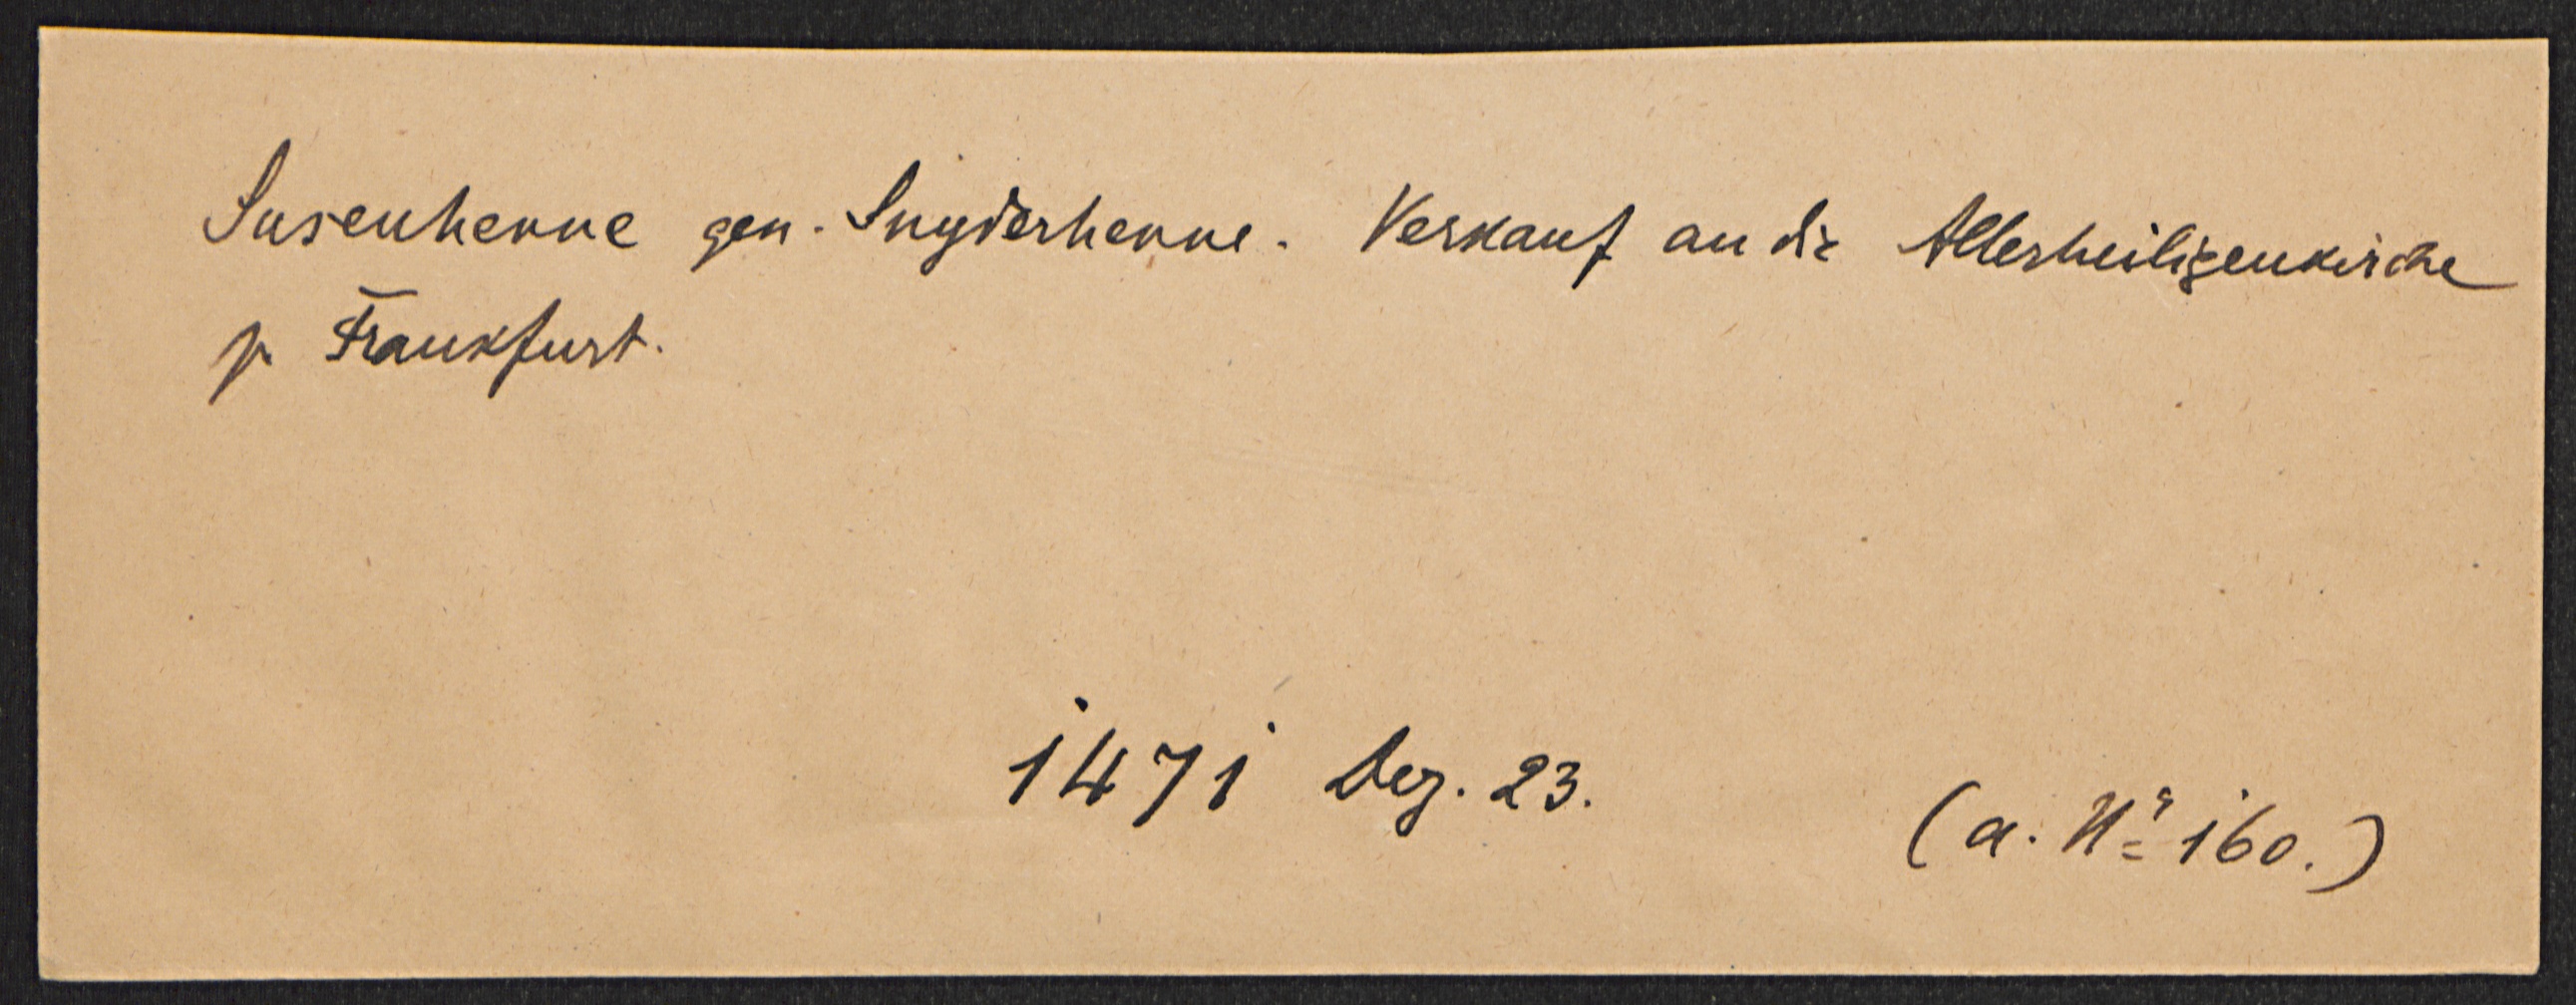 Susenhenne gen. Snyderhenne. Verkauf an die Allerheiligenkirche
zu Frankfurt.
1471 Dez. 23.
(a. Nr 160.)